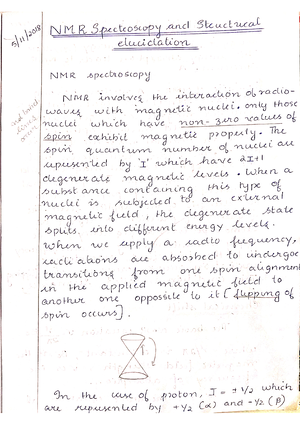 5/11/2018
NMR Spectroscopy and Structural
elucidation
NMR spectroscopy
NMR involves the interaction of radio-
waves with magnetic nuclei. only those
nuclei which have non-zero values of
spin exhibit magnetic property. The
spin quantum number of nuclei are
repesented by 'I' which have 2I+1
degenerate magnetic levels. When a
substance containing this type of
nuclei is subjected to an external
magnetic field, the degenerate state
splits into different energy levels.
When we apply a radio frequency,
radiations are absorbed to undergoe
transitions from one spin alignment
in the applied magnetic field to
another one opposite to it [flipping of
spin occurs].
In the case of proton, I = ± 1/2 which
are repesented by +1/2 (α) and -1/2 (β)